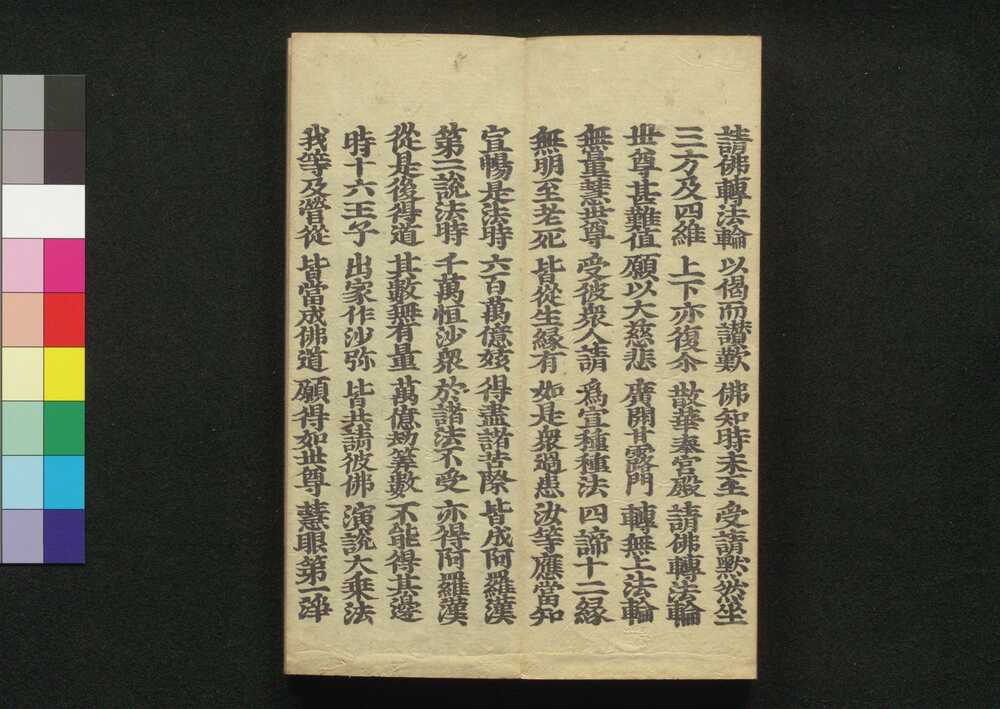 請佛轉法輪 以偈而讃歎 佛知時未至 受請黙然坐
三方及四維 上下亦復尒 散華奉宮殿 請佛轉法輪
世尊甚難值 願以大慈悲 廣開甘露門 轉無上法輪
無量慧世尊 受彼衆人請 爲宣種種法 四諦十二縁
無明至老死 皆從生縁有 如是衆過患 汝等應當知
宣暢是法時 六百萬億姟 得盡諸苦際 皆成阿羅漢
第二說法時 千萬恒沙衆 於諸法不受 亦得阿羅漢
從是後得道 其數無有量 萬億劫筭數 不能得其邊
時十六王子 出家作沙弥 皆共請彼佛 演說大乘法
我等及營從 皆當成佛道 願得如世尊 慧眼第一淨